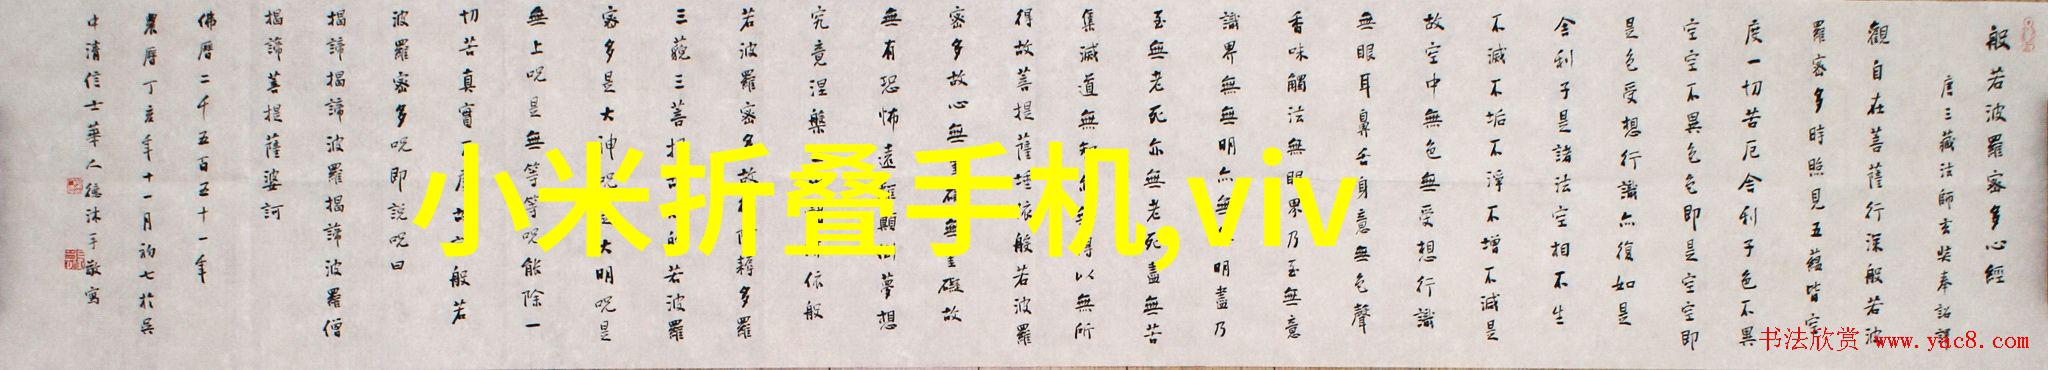 般若波羅蜜多心經
唐三藏法師玄奘奉詔譯
觀自在菩薩行深般若波
羅蜜多時照見五蘊皆空
度一切苦厄舍利子色不異
空空不異色色即是空空即
是色受想行識亦復如是
舍利子是諸法空相不生
不滅不垢不淨不增不減是
故空中無色無受想行識
無眼耳鼻舌身意無色聲
香味觸法無眼界乃至無意
識界無無明亦無明盡乃
至無老死亦無老死盡無苦
集滅道無得以無所
得故菩提薩埵依般若波羅
蜜多故心無礙無礙故
無有恐怖遠離顛倒夢想
究竟涅槃依般
若波羅蜜多故耨多羅
三藐三菩提若波羅
蜜多是大神咒大明咒是
無上咒是無等等咒能除一
切苦真實般若
波羅蜜多咒即說咒曰
揭諦揭諦波羅揭諦波羅僧
揭諦菩提薩婆訶
佛曆二千五百五十一年
農曆丁亥年十一月初七於吳
中清信士華人德沐手敬寫
小米折叠手机,viv
书法欣赏 www.yac8.com